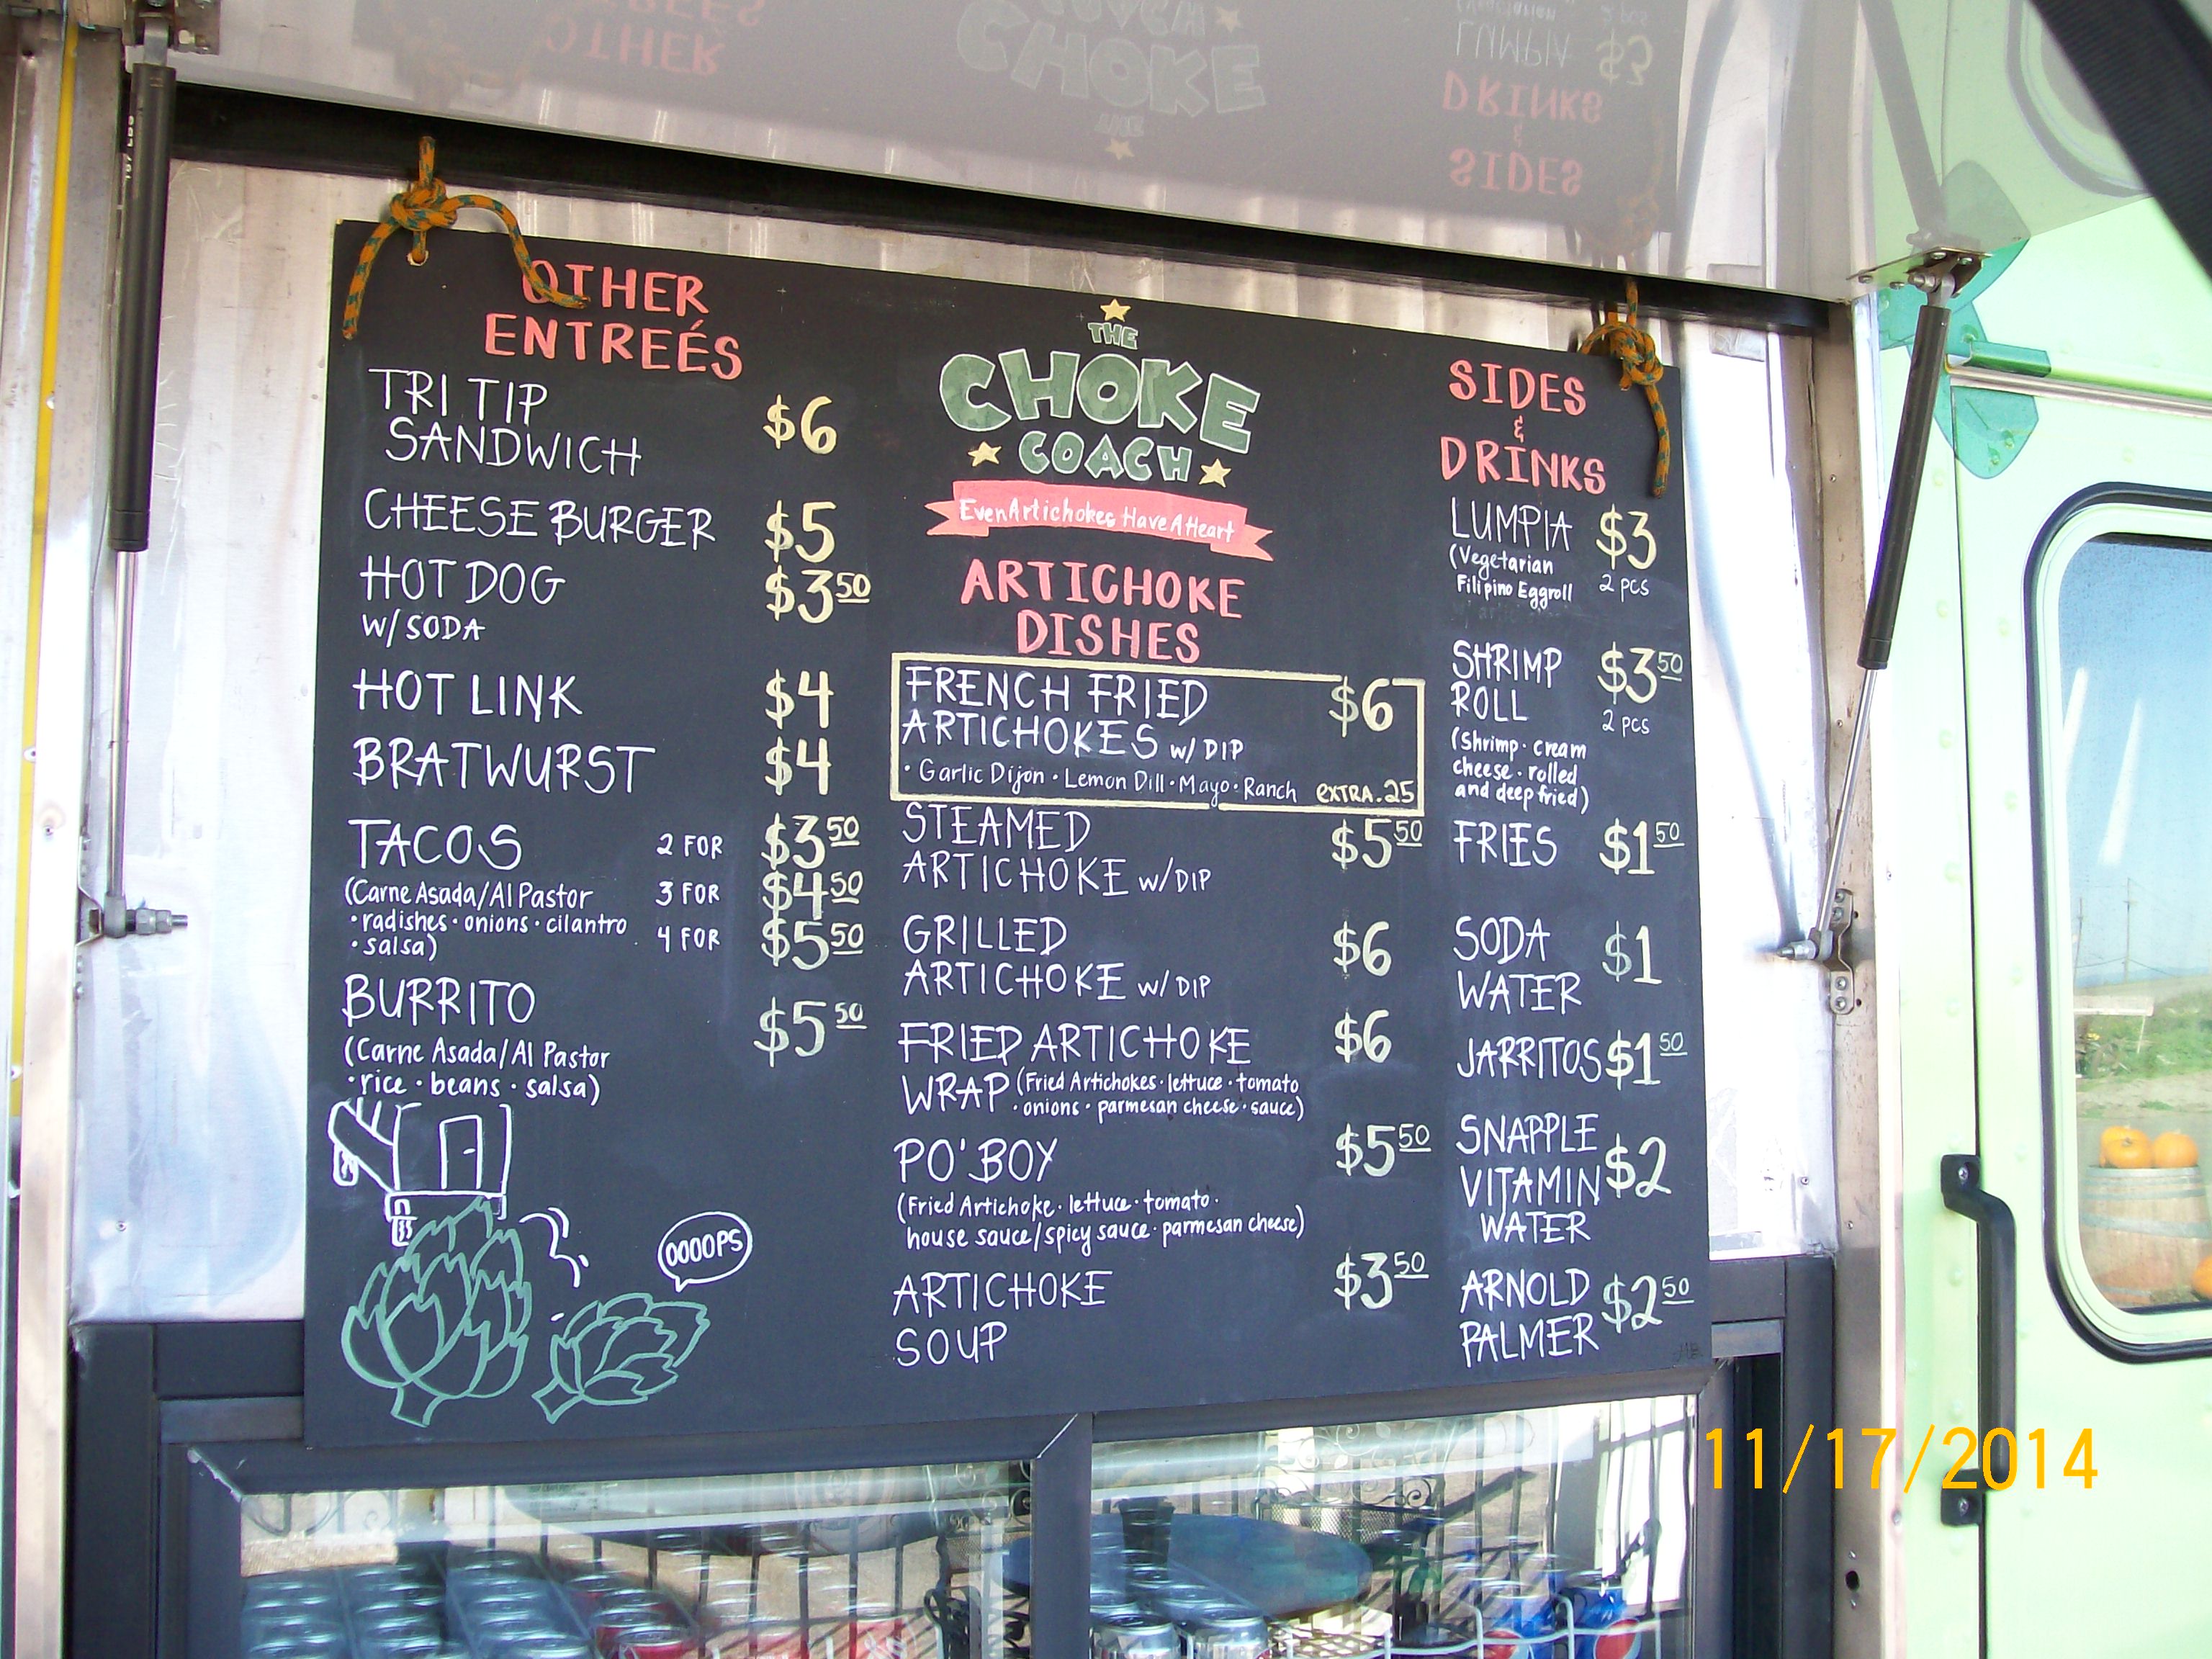 OTHER
ENTREÉS
TRI TIP
SANDWICH $6
CHEESE BURGER $5
HOT DOG $3 50
W/ SODA
HOT LINK $4
BRATWURST $4
TACOS 2 FOR $3 50
(Carne Asada/Al Pastor 3 FOR $4 50
·radishes·onions·cilantro
·salsa) 4 FOR $5 50
BURRITO $5 50
(Carne Asada/Al Pastor
·rice·beans·salsa)
OOOOPS
THE
CHOKE
COACH
Even Artichokes Have A Heart
ARTICHOKE
DISHES
FRENCH FRIED $6
ARTICHOKES w/ DIP
·Garlic Dijon·Lemon Dill·Mayo·Ranch extra .25
STEAMED $5 50
ARTICHOKE w/DIP
GRILLED $6
ARTICHOKE w/ DIP
FRIED ARTICHOKE $6
WRAP (Fried Artichokes·lettuce·tomato
·onions·parmesan cheese·sauce)
PO'BOY $5 50
(Fried Artichoke·lettuce·tomato·
house sauce/spicy sauce·parmesan cheese)
ARTICHOKE $3 50
SOUP
SIDES
&
DRINKS
LUMPIA $3
(Vegetarian
Filipino Eggroll 2 pcs
SHRIMP $3 50
ROLL 2 pcs
(Shrimp·cream
cheese·rolled
and deep fried)
FRIES $1 50
SODA $1
WATER
JARRITOS $1 50
SNAPPLE
VITAMIN $2
WATER
ARNOLD $2 50
PALMER
11/17/2014